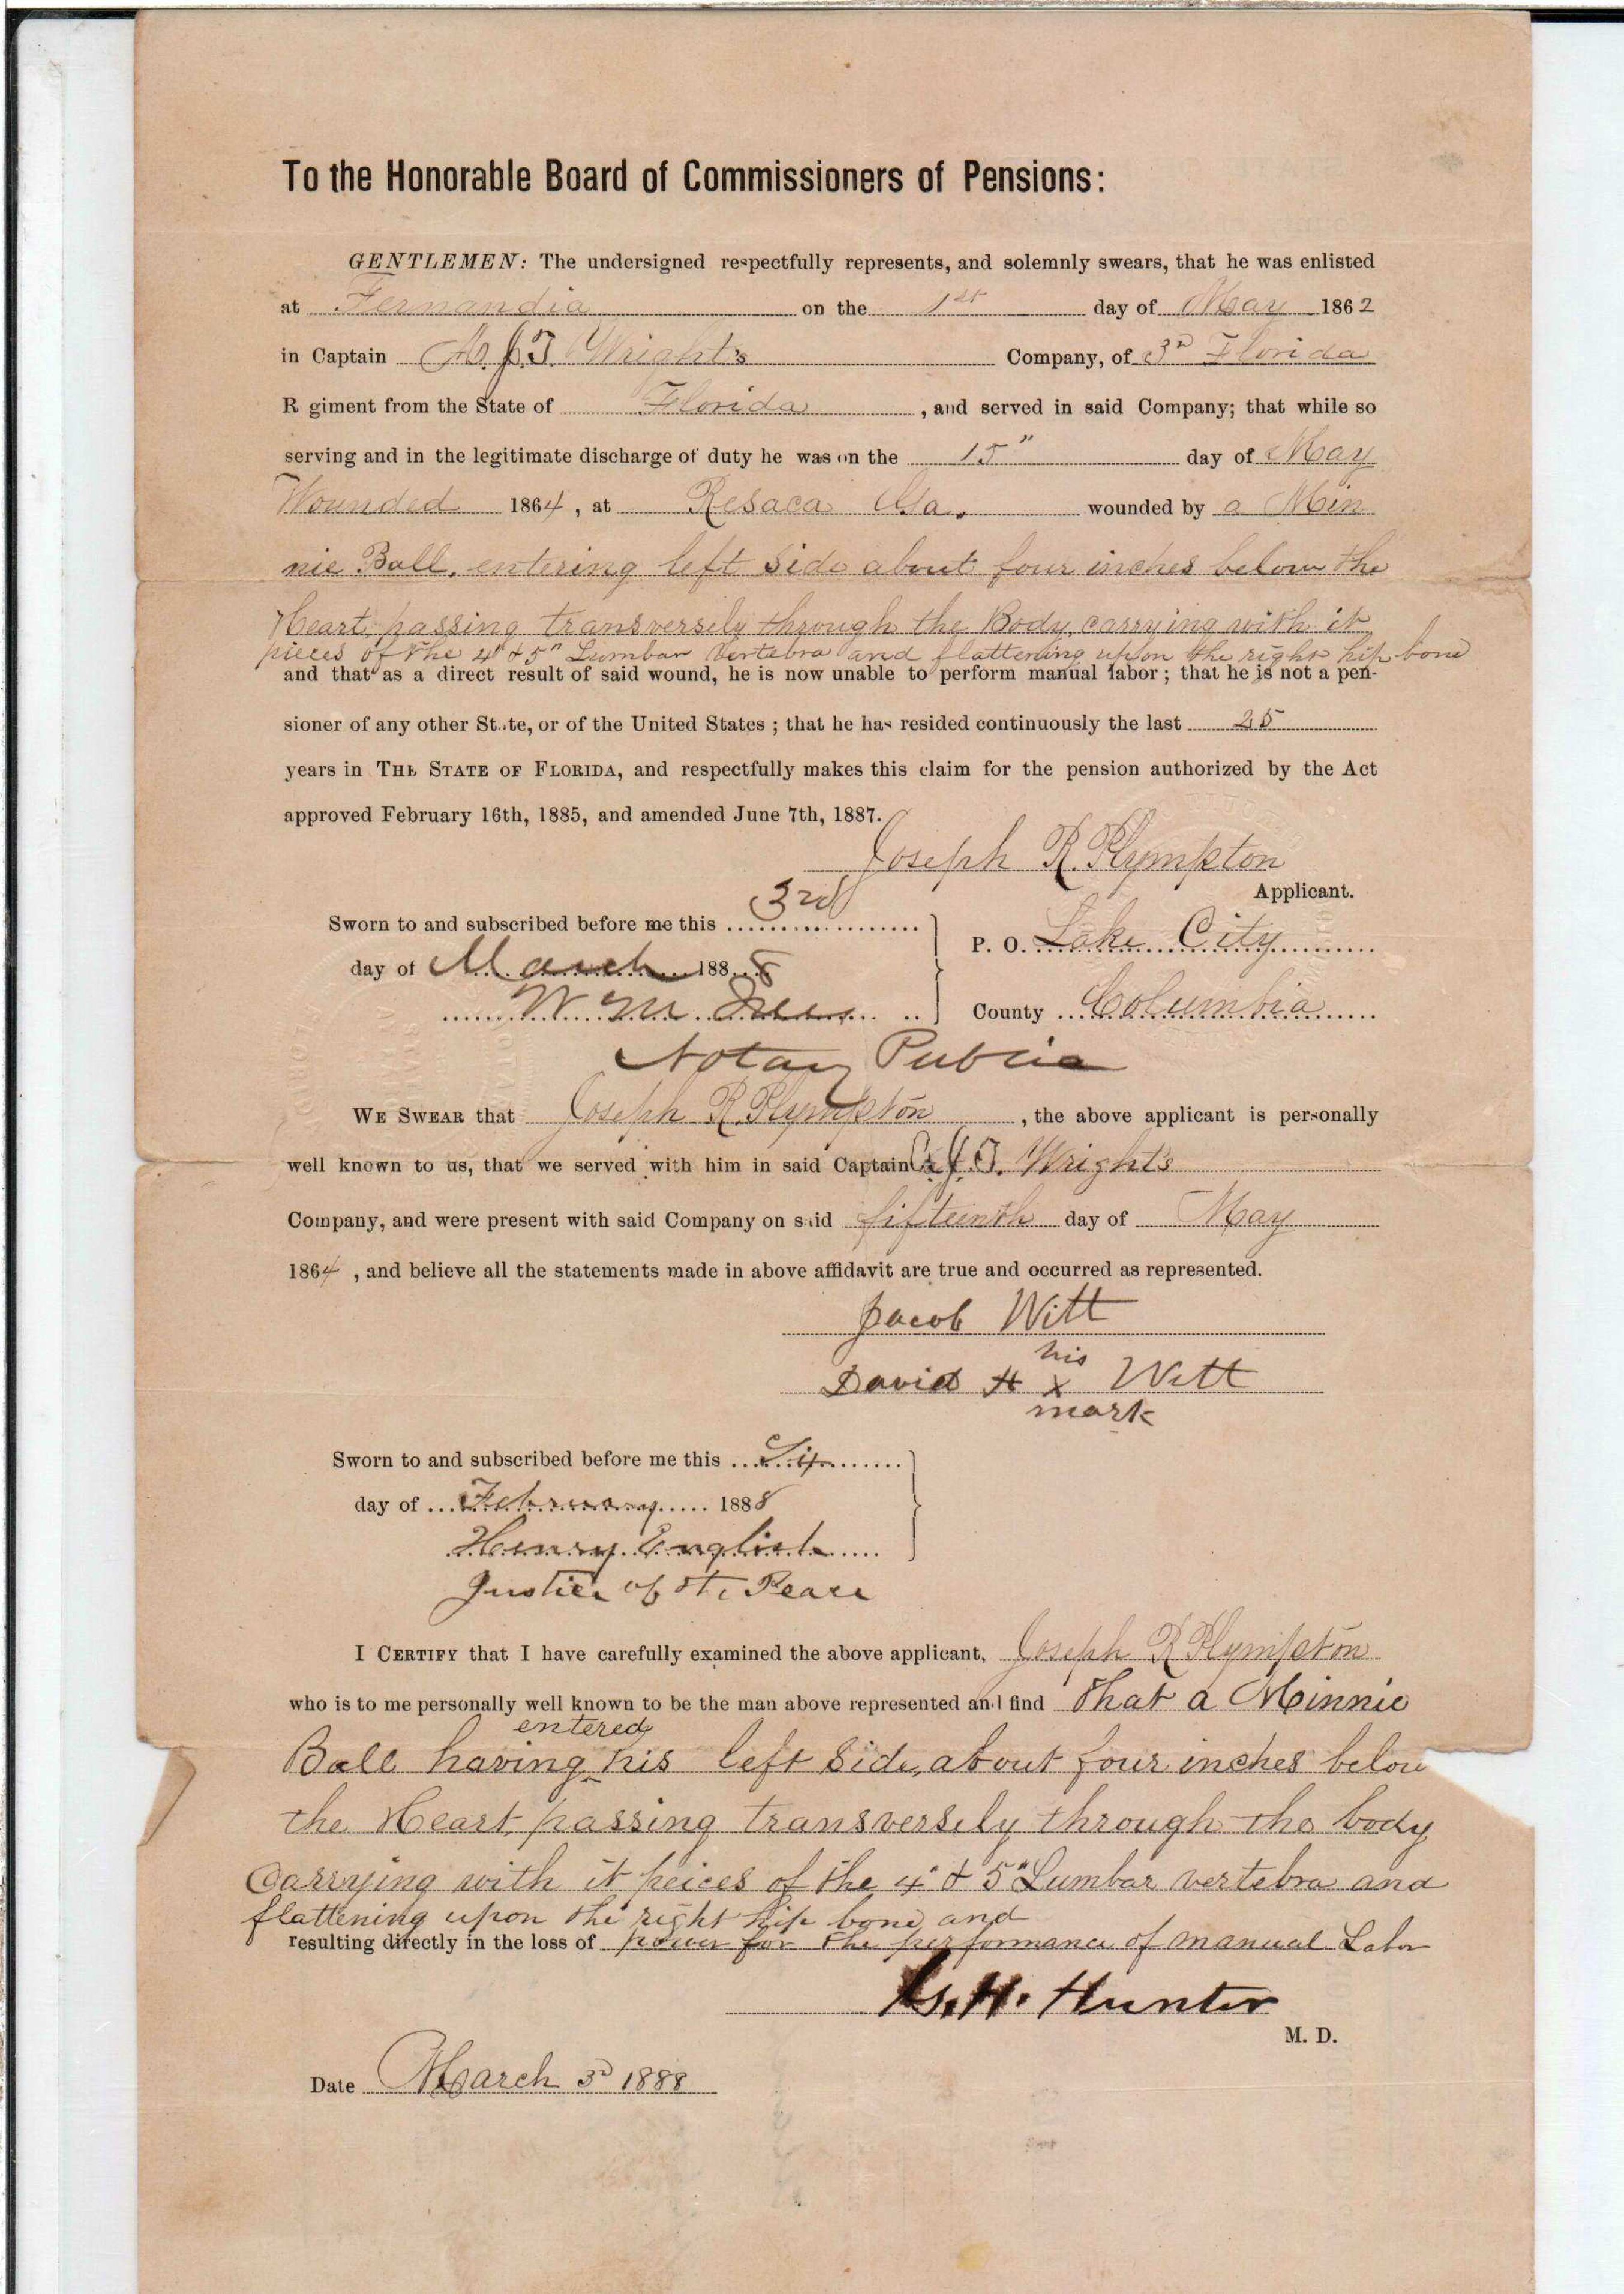 To the Honorable Board of Commissioners of Pensions:
GENTLEMEN: The undersigned respectfully represents, and solemnly swears, that he was enlisted
at Fernandia on the 1st day of May 1862
in Captain J. Wright's Company, of 3D Florida
R giment from the State of Florida, and served in said Company; that while so
serving and in the legitimate discharge of duty he was on the 15" day of May
Wounded 1864, at Resaca Ga. wounded by a Min
nie Ball, entering left Side about four inches below the
Heart, passing transversely through the Body, carrying with it
pieces of the 4" & 5" Lumbar Vertebra and flattening upon the right hip bone
and that as a direct result of said wound, he is now unable to perform manual labor; that he is not a pen-
sioner of any other St..te, or of the United States; that he has resided continuously the last 25
years in THE STATE OF FLORIDA, and respectfully makes this claim for the pension authorized by the Act
approved February 16th, 1885, and amended June 7th, 1887.
Joseph R. Plympton
Applicant.
Sworn to and subscribed before me this 3rd
day of March 1888
W. M.
Notary Public
P. O. Lake City
County Columbia
WE SWEAR that Joseph R Plympton, the above applicant is personally
well known to us, that we served with him in said Captain J. Wright's
Company, and were present with said Company on said fifteenth day of May
1864, and believe all the statements made in above affidavit are true and occurred as represented.
Jacob Witt
his
David H x Witt
mark
Sworn to and subscribed before me this
day of February 1888
Henry English
Justice of the Peace
I CERTIFY that I have carefully examined the above applicant, Joseph R Plympton
who is to me personally well known to be the man above represented and find that a Minnie
entered
Ball having his left Side, about four inches below
the Heart, passing transversely through the body
Carrying with it peices of the 4" & 5" Lumbar vertebra and
flattening upon the right hip bone, and
resulting directly in the loss of power for the performance of manual Labor
H. Hunter
M. D.
Date March 3D 1888